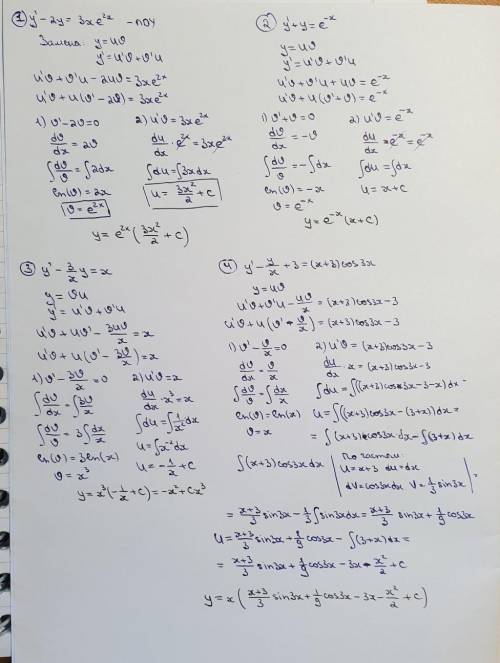 1) y' - 2y = 3xe^{2x} - ЛОУ
Замена: y = uϑ
y' = u'ϑ + ϑ'u
u'ϑ + ϑ'u - 2uϑ = 3xe^{2x}
u'ϑ + u(ϑ' - 2ϑ) = 3xe^{2x}
1) ϑ' - 2ϑ = 0
dϑ/dx = 2ϑ
∫dϑ/ϑ = ∫2dx
ln(ϑ) = 2x
ϑ = e^{2x}
2) u'ϑ = 3xe^{2x}
du/dx · e^{2x} = 3xe^{2x}
∫du = ∫3xdx
u = 3x²/2 + C
y = e^{2x}(3x²/2 + C)
2) y' + y = e^{-x}
y = uϑ
y' = u'ϑ + ϑ'u
u'ϑ + ϑ'u + uϑ = e^{-x}
u'ϑ + u(ϑ' + ϑ) = e^{-x}
1) ϑ' + ϑ = 0
dϑ/dx = -ϑ
∫dϑ/ϑ = -∫dx
ln(ϑ) = -x
ϑ = e^{-x}
2) u'ϑ = e^{-x}
du/dx · e^{-x} = e^{-x}
∫du = ∫dx
u = x + C
y = e^{-x}(x + C)
3) y' - 3/x y = x
y = ϑu
y' = u'ϑ + ϑ'u
u'ϑ + uϑ' - 3uϑ/x = x
u'ϑ + u(ϑ' - 3ϑ/x) = x
1) ϑ' - 3ϑ/x = 0
∫dϑ/dx = ∫3ϑ/x
∫dϑ/ϑ = 3∫dx/x
ln(ϑ) = 3ln(x)
ϑ = x³
2) u'ϑ = x
du/dx · x³ = x
∫du = ∫1/x² dx
u = ∫x^{-2}dx
u = -1/x + C
y = x³(-1/x + C) = -x² + Cx³
4) y' - y/x + 3 = (x+3)cos3x
y = uϑ
u'ϑ + ϑ'u - uϑ/x = (x+3)cos3x - 3
u'ϑ + u(ϑ' - ϑ/x) = (x+3)cos3x - 3
1) ϑ' - ϑ/x = 0
dϑ/dx = ϑ/x
∫dϑ/ϑ = ∫dx/x
ln(ϑ) = ln(x)
ϑ = x
2) u'ϑ = (x+3)cos3x - 3
du/dx · x = (x+3)cos3x - 3
∫du = ∫((x+3)cos3x - 3 - x)dx =
u = ∫((x+3)cos3x - (3+x)dx =
= ∫(x+3)·cos3xdx - ∫(3+x)dx
∫(x+3)cos3xdx
по частям:
u = x+3 du = dx
dV = cos3xdx V = 1/3 sin3x
= (x+3)/3 sin3x - 1/3 ∫sin3xdx = (x+3)/3 sin3x + 1/9 cos3x
u = (x+3)/3 sin3x + 1/9 cos3x - ∫(3+x)dx =
= (x+3)/3 sin3x + 1/9 cos3x - 3x - x²/2 + C
y = x((x+3)/3 sin3x + 1/9 cos3x - 3x - x²/2 + C)